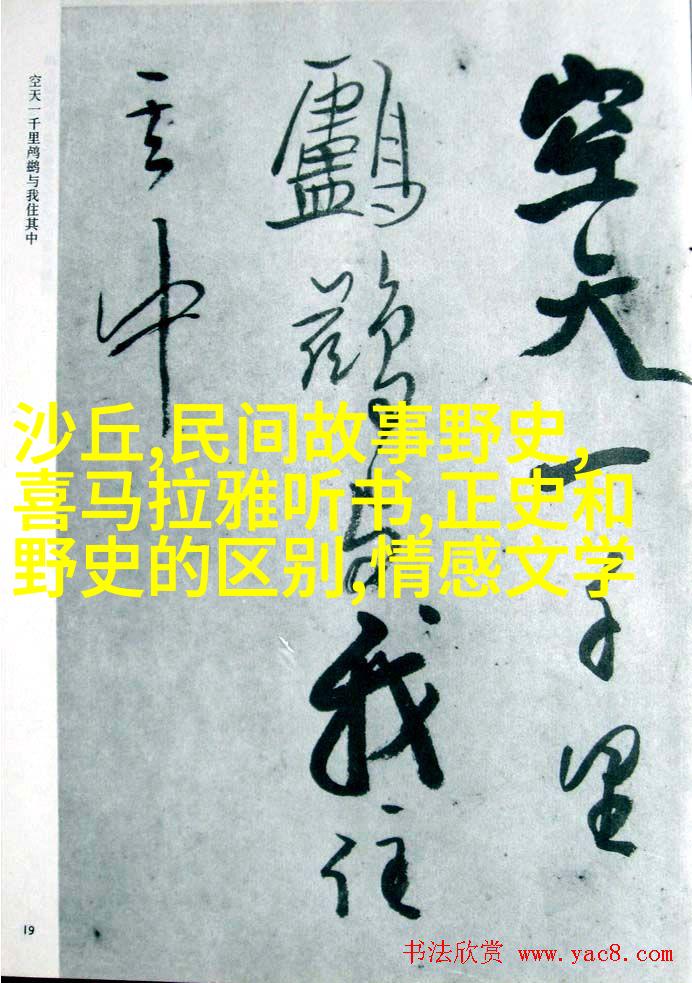 空天一千里
我住
其中
空天一千里
与我住其中
沙丘,民间故事野史,
喜马拉雅听书,正史和
野史的区别,情感文学
19
书法欣赏 www.yac8.com